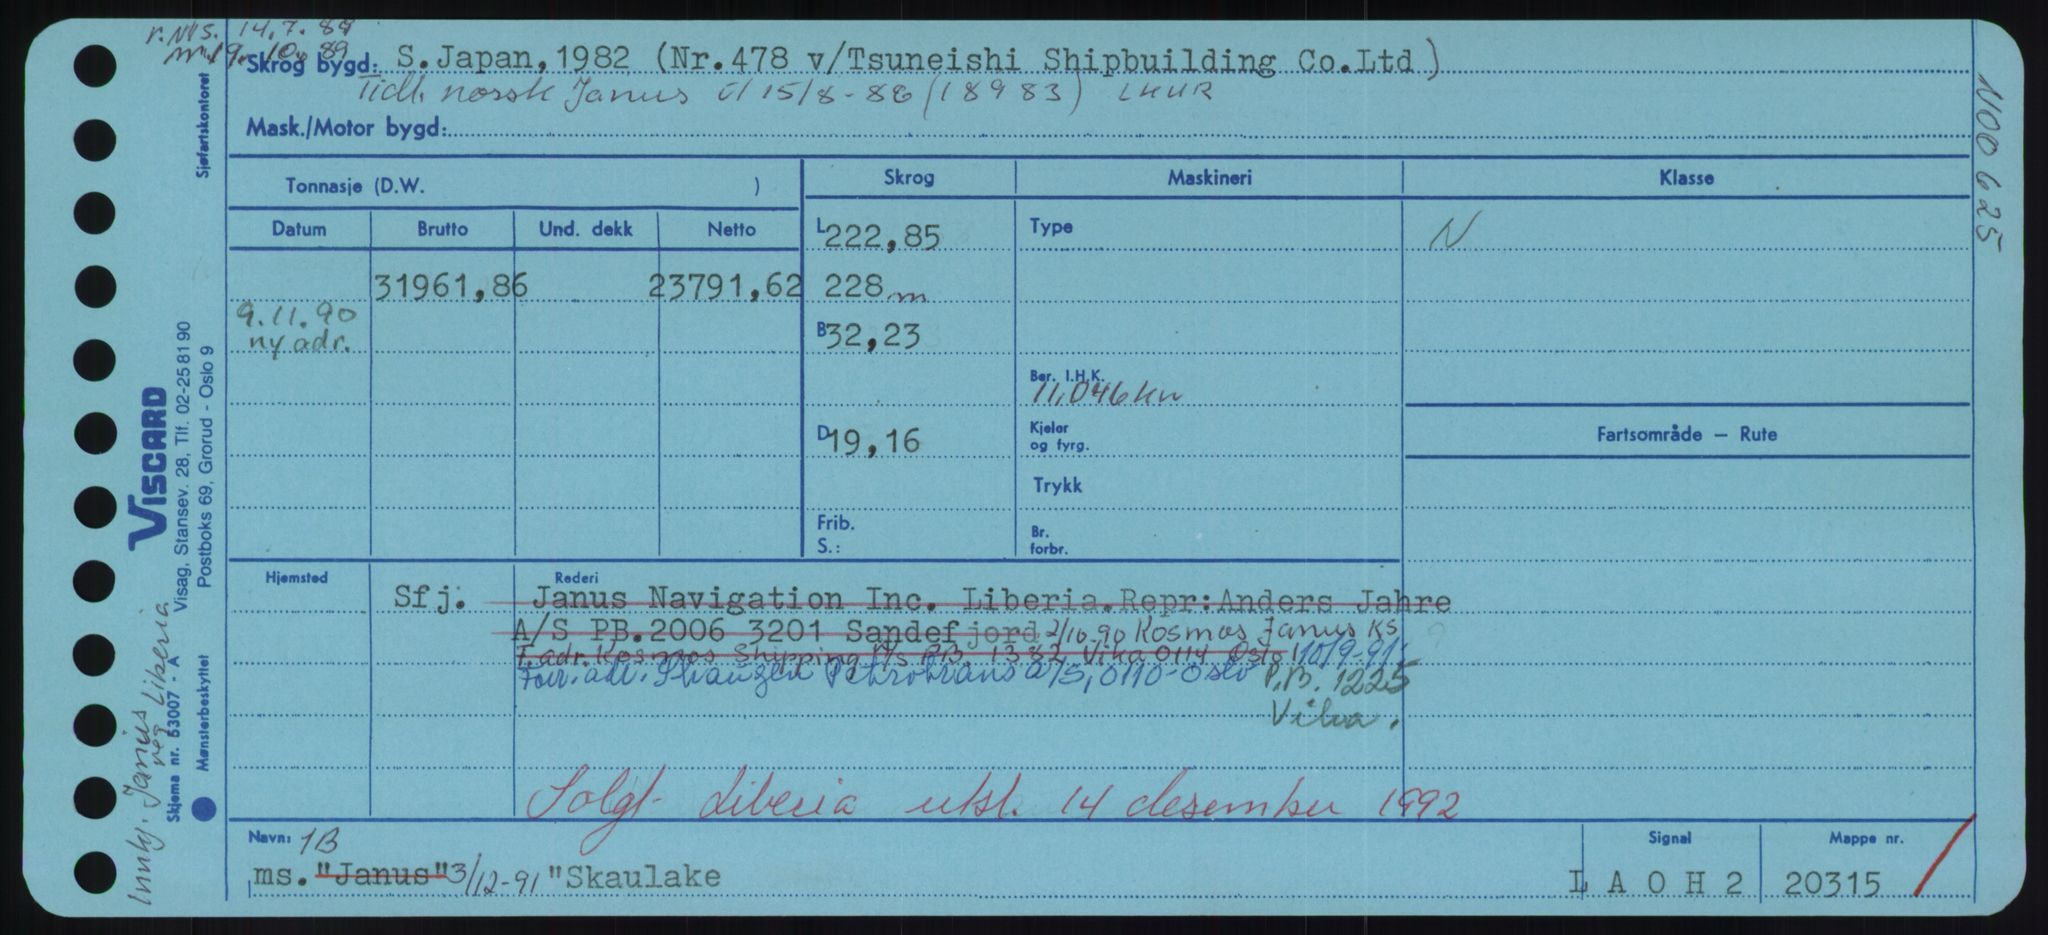 r. NIS. 14.7.89
m. 19. 10. 89
Skrog bygd: S.Japan,1982 (Nr.478 v/Tsuneishi Shipbuilding Co.Ltd)
Tidl. norsk Janus 15/8-86 (18983) LHUR
Mask./Motor bygd:
N00625
Tonnasje (D.W. )
Skrog Maskineri Klasse
Datum Brutto Und. dekk Netto
L 222,85 Type N
31961,86 23791,62 228 m
9.11.90
ny adr.
B 32,23
Ber. I.H.K.
11,046 kw
D 19,16
Kjeler
og fyrg.
Fartsområde – Rute
Trykk
Frib.
S.:
Br.
forbr.
Hjemsted Sfj. Rederi
Janus Navigation Inc. Liberia.Repr:Anders Jahre
A/S PB.2006 3201 Sandefjord 2/10-90 Kosmos Janus KS
F.adr. Kosmos Shipping A/S P.B. 1382 Vika 0114 Oslo 1 10/9-91
Forr. adr. Stangen Petrotrans A/S, 0110-Oslo P.B. 1225
Vika.
Solgt Liberia utsl. 14 desember 1992
Navn: 1B
ms. "Janus" 3/12-91 "Skaulake
Signal
L A O H 2
Mappe nr.
20315
Sjøfartskontoret
VISCARD
Visag, Stansev. 28, Tlf. 02-25 81 90
Postboks 69, Grorud - Oslo 9
Skjema nr. 53007 - A
Mønsterbeskyttet
Janus
reg Liberia